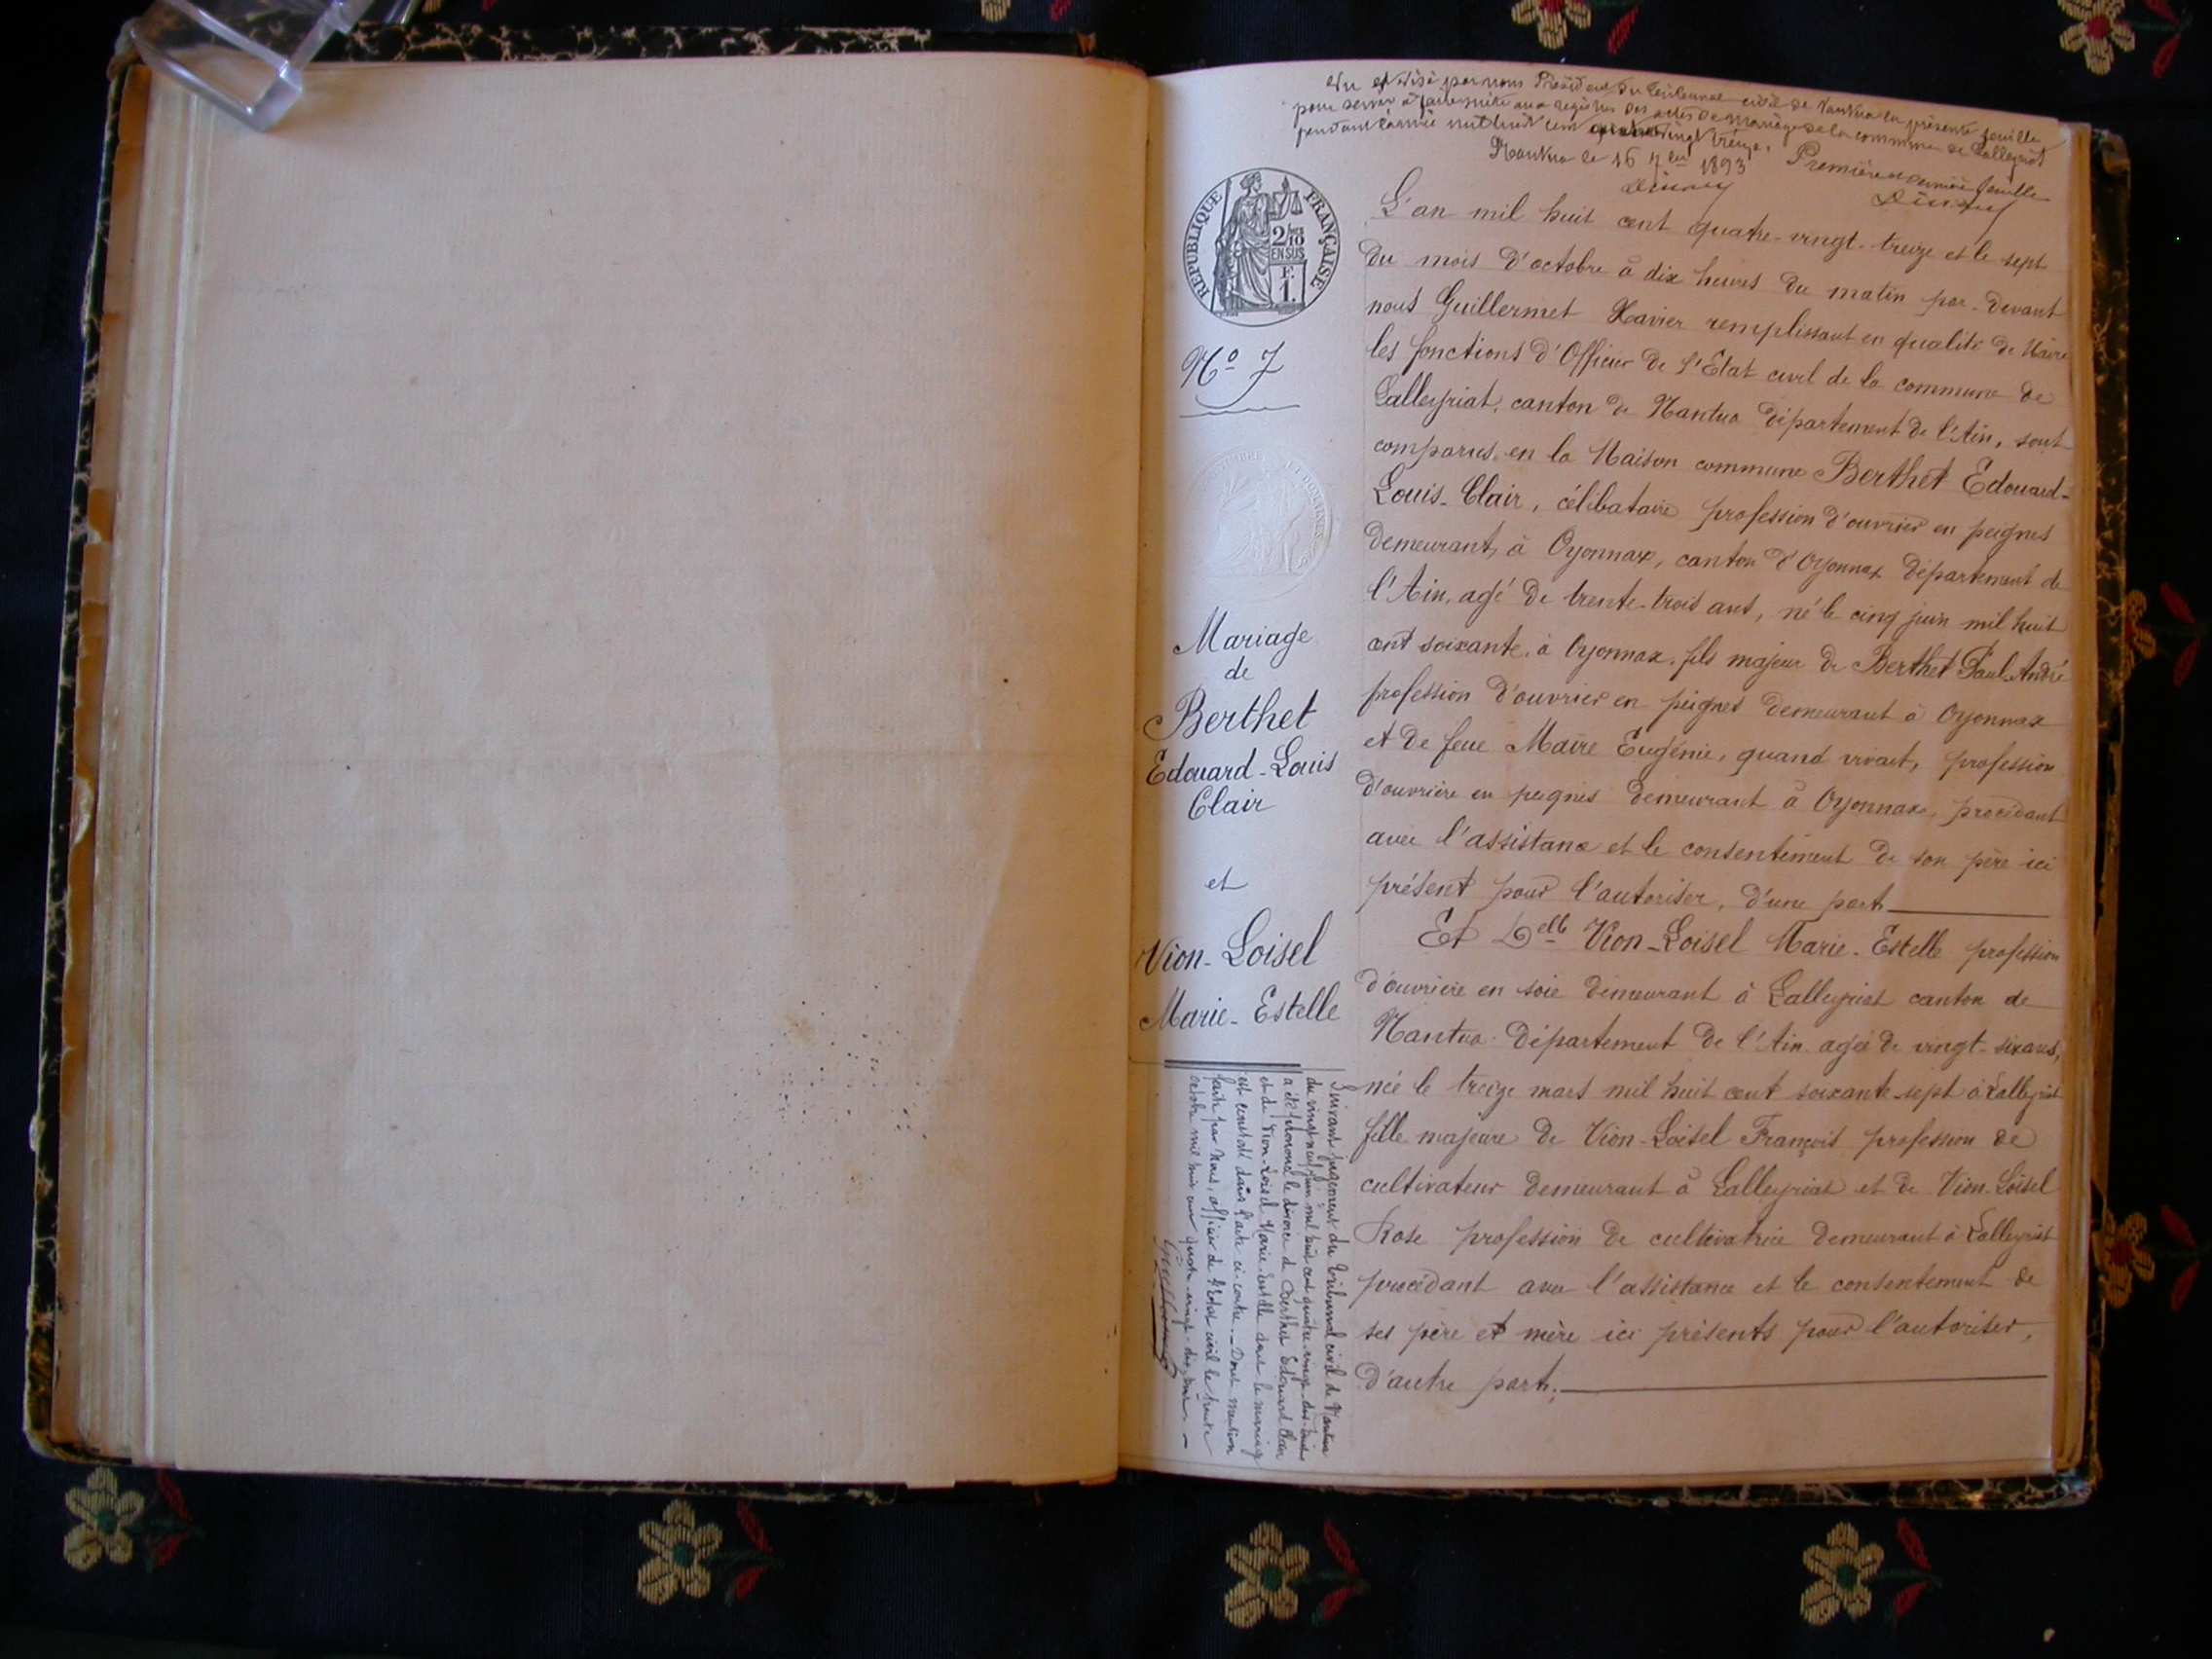 Vu et visé par nous Président du tribunal civil de Nantua la présente feuille
pour servir à faire suite aux registres des actes de mariage de la commune de Lalleyriat
pendant l'année mil huit cent quatre vingt treize.
Nantua le 16 7bre 1893
Première et dernière feuille
REPUBLIQUE FRANÇAISE
2/10
EN SUS
F.
1.
No 7
Mariage
de
Berthet
Edouard-Louis
Clair
et
Vion-Loisel
Marie-Estelle
L'an mil huit cent quatre-vingt-treize et le sept
du mois d'octobre à dix heures du matin par-devant
nous Guillermet Xavier remplissant en qualité de Maire
les fonctions d'Officier de l'Etat civil de la commune de
Lalleyriat, canton de Nantua département de l'Ain, sont
comparus en la Maison commune Berthet Edouard-
Louis-Clair, célibataire profession d'ouvrier en peignes
demeurant à Oyonnax, canton d'Oyonnax département de
l'Ain, agé de trente-trois ans, né le cinq juin mil huit
cent soixante, à Oyonnax, fils majeur de Berthet Paul-André
profession d'ouvrier en peignes demeurant à Oyonnax
et de feue Maire Eugénie, quand vivait, profession
d'ouvrière en peignes demeurant à Oyonnax, procédant
avec l'assistance et le consentement de son père ici
présent pour l'autoriser, d'une part
Et Delle Vion-Loisel Marie-Estelle profession
d'ouvrière en soie demeurant à Lalleyriat canton de
Nantua département de l'Ain agée de vingt-six ans,
née le treize mars mil huit cent soixante-sept à Lalleyriat
fille majeure de Vion-Loisel François profession de
cultivateur demeurant à Lalleyriat et de Vion-Loisel
Rose profession de cultivatrice demeurant à Lalleyriat
procédant avec l'assistance et le consentement de
ses père et mère ici présents pour l'autoriser,
d'autre part.
Suivant jugement du Tribunal civil de Nantua
du vingt neuf juin mil huit cent quatre-vingt-dix-huit
a été prononcé le divorce de Berthet Edouard Clair
et de Vion-Loisel Marie Estelle dont le mariage
est constaté dans l'acte ci-contre. Dont mention
faite par Nous, officier de l'Etat civil le trente
octobre mil huit cent quatre-vingt-dix-huit